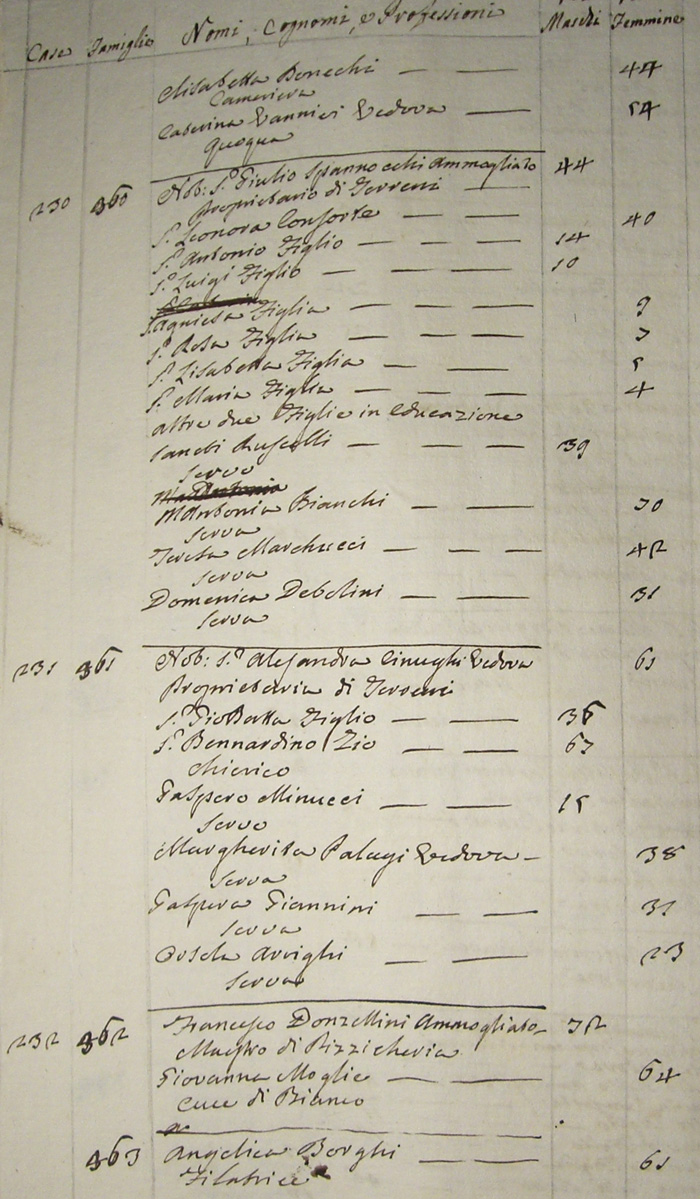 Case Famiglie Nomi, Cognomi, e Professioni Maschi Femmine
Elisabetta Bonechi — — 44
Cameriera
Caterina Vannici Vedova — 54
Quoqua
230 360 Nob: S.r Giulio Spannocchi Ammogliato 44
Proprietario di Terreni —
S.a Leonora Consorte — — 40
S.r Antonio Figlio — — — 14
S.r Luigi Figlio — — — 10
S.a Agniesa Figlia — — — 9
S.a Rosa Figlia — — — 7
S.a Lisabetta Figlia — — 5
S.a Maria Figlia — — — 4
altre due Figlie in educazione
Santi Ruscelli — — — 39
Servo
M.Antonia Bianchi — — 70
Serva
Teresa Marchucci — — — 45
Serva
Domenica Debolini — — 31
Serva
231 361 Nob: S.a Alesandra Cinughi Vedova 61
Proprietaria di Terreni
S.r GioBatta Figlio — — 36
S.r Bennardino Zio — — 67
Chierico
Gaspero Minucci — — 15
Servo
Margherita Palagi Vedova — 38
Serva
Gaspera Giannini — — 31
Serva
Orsola Arrighi — — 23
Serva
232 362 Francesco Donzellini Ammogliato — 75
Maestro di Pizzicheria
Giovanna Moglie — — 64
Cuce di Bianco
363 Angelica Borghi — — 61
Filatrice